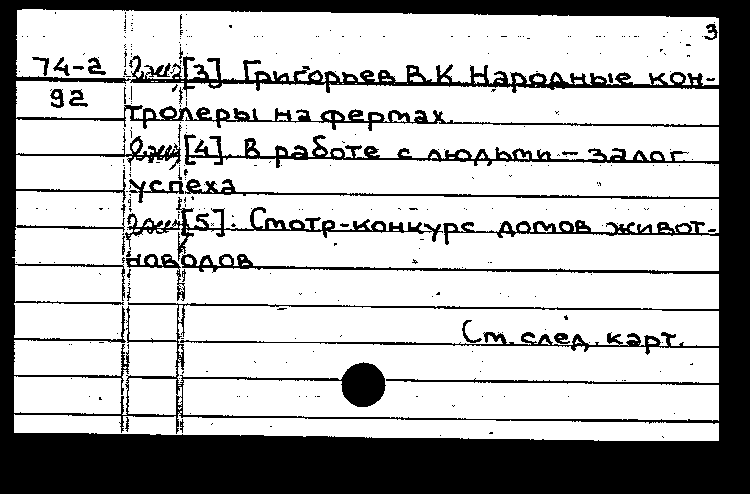 3
74-2 [3]. Григорьев В.К. Народные кон-
92
тролеры на фермах.
[4]. В работе с людьми – залог
успеха.
[5]. Смотр-конкурс домов живот-
новодов.
См. след. карт.